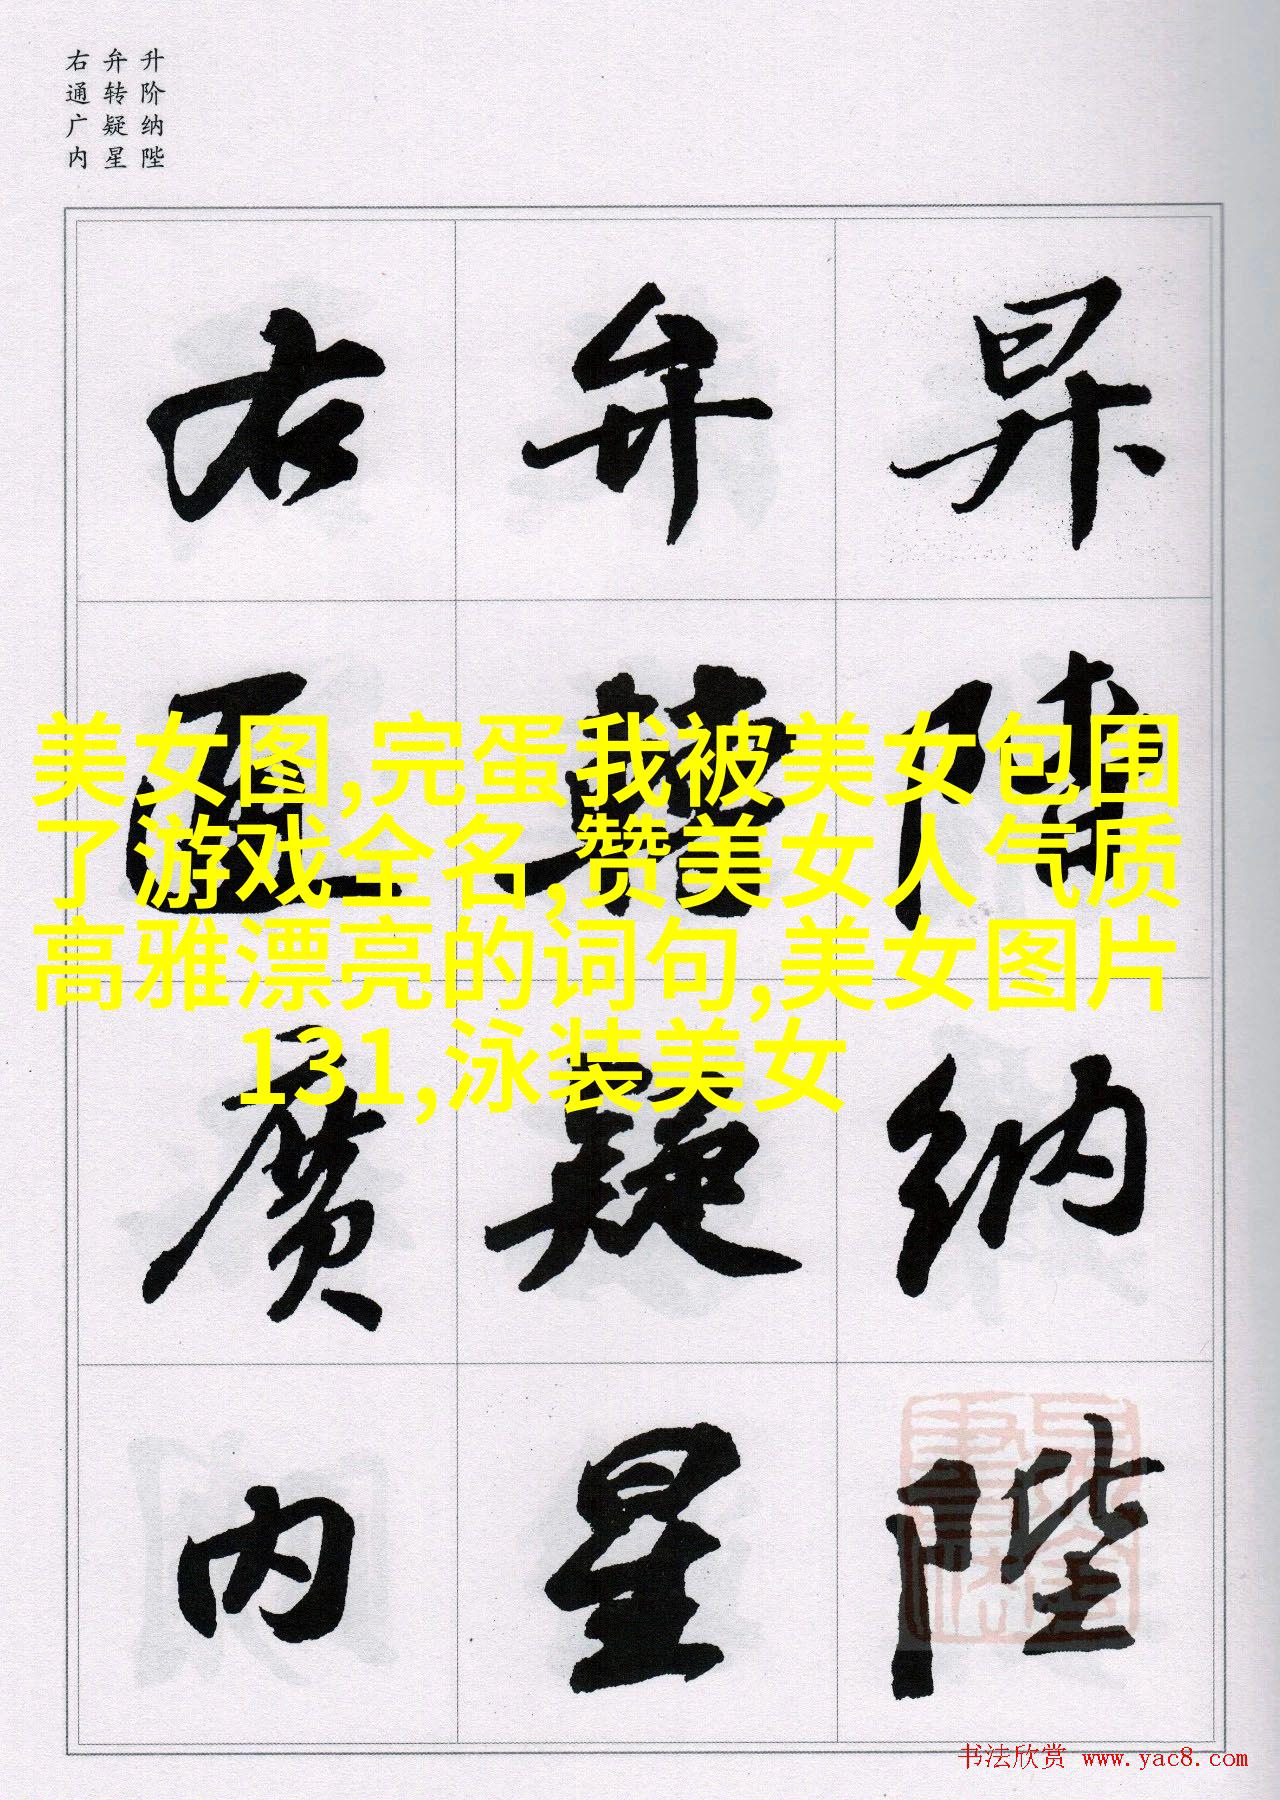 升阶纳陛
弁转疑星
右通广内
昇階納陛
弁轉疑星
右通廣内
美女图,完蛋我被美女包围
了游戏全名,赞美女人气质
高雅漂亮的词句,美女图片
131,泳装美女
书法欣赏 www.yac8.com